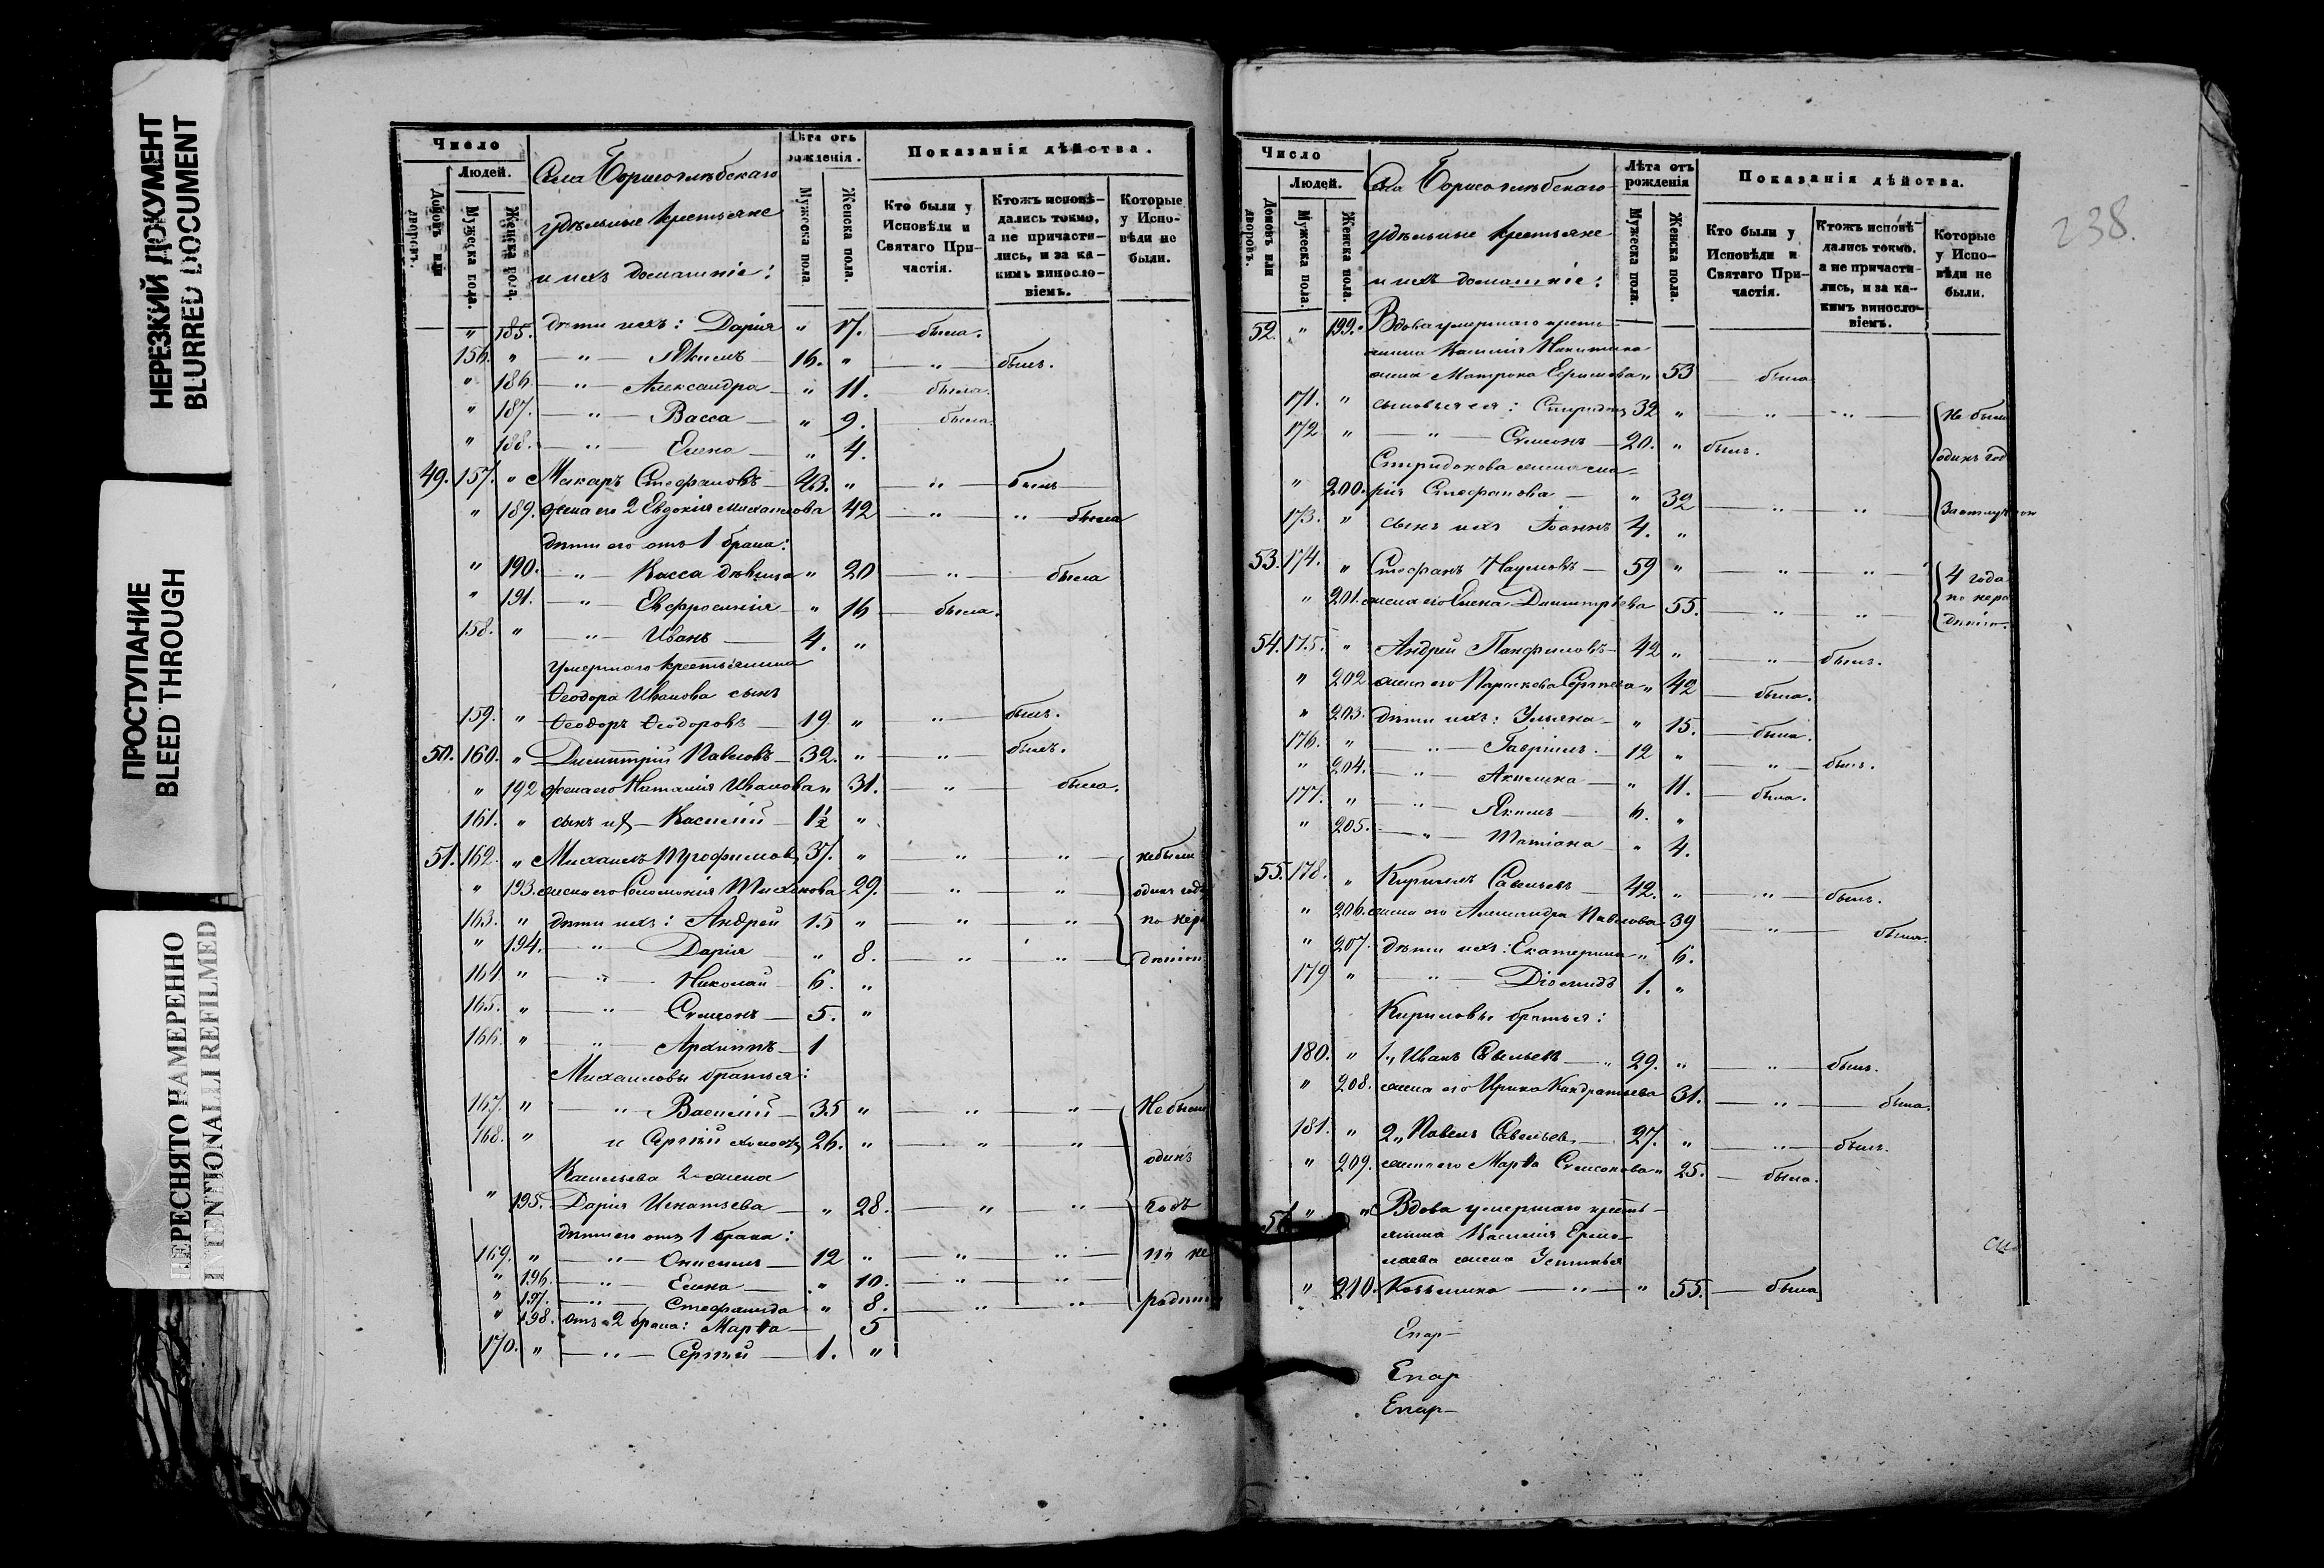 НЕРЕЗКИЙ ДОКУМЕНТ
BLURRED DOCUMENT
ПРОСТУПАНИЕ
BLEED THROUGH
ПЕРЕСНЯТО НАМЕРЕННО
INTENTIONALLI REFILMED
Число
Людей.
Домовъ или дворовъ.
Мужеска пола.
Женска пола.
Села Борисоглѣбскаго
удѣльные крестьяне
и ихъ домашніе:
Лѣта отъ рожденія.
Мужеска пола.
Женска пола.
Показанія дѣйства.
Кто были у Исповѣди и Святаго При-частія.
Ктожъ исповѣ-дались токмо, а не причасти-лись, и за ка-кимъ винесло-віемъ.
Которые у Испо-вѣди не были.
" 185. дѣти ихъ: Дарія " 17. была.
156. " — " — Якимъ 16. " — " — былъ.
" 186. — " — Александра " 11. была.
" 187. — " — Васса " 9. была.
" 188. — " — Елена " 4.
49. 157. " Макаръ Стефановъ 43. " — " — былъ
" 189. жена его 2 Евдокия Михаилова 42 — " — " была
дѣти его отъ 1 брака:
" 190. — " — Васса дѣвица " 20 — " — была
" 191. — " — Евфросинія " 16 была.
158. " — " — Иванъ 4. "
умершаго крестьянина
Ѳеодора Иванова сынъ
159. " Ѳеодоръ Ѳеодоровъ 19 " — " — былъ.
50. 160. " Димитрій Павловъ 32. " — " — былъ.
" 192 жена его Наталия Иванова " 31. — " — была.
161. " сынъ ихъ Василій 1½ "
51. 162. " Михаилъ Трофимовъ 37. " — " — " — небыли
" 193. жена его Соломонія Тиханова 29. — " — " одинъ годъ
163. " дѣти ихъ: Андрей 15 " — " — " по нера
" 194. — " — Дарія " 8. — " — " дѣнію
164 " — " — Николай 6. "
165. " — " — Семонъ 5. "
166. " — " — Архиппъ 1
Михаиловы братья:
167. " — " Василій 35 " — " — " Небыли
168. " и Сергѣй холостъ 26. " — " — " одинъ
Васильева 2 жена
" 195. Дарія Игнатьева " 28. — " — " годъ
дѣти его отъ 1 брака:
169. " — " — Онисимъ 12 " — " — " по не
" 196. — " — Елена " 10. — " — "
" 197. — " — Стефанида " 8. — " — " радѣнію
" 198. отъ 2 брака: Марѳа 5
170. " — " — Сергѣй 1. "
238.
Число
Людей.
Домовъ или дворовъ.
Мужеска пола.
Женска пола.
Села Борисоглѣбскаго
удѣльные крестьяне
и ихъ домашніе:
Лѣта отъ рожденія
Мужеска пола.
Женска пола.
Показанія дѣйства.
Кто были у Исповѣди и Святаго При-частія.
Ктожъ исповѣ-дались токмо. а не причасти-лись, и за ка-кимъ винесло-віемъ.
Которые у Испо-вѣди не были.
52. " 199. Вдова умершаго кресть-
янина Василія Никитина
жена Матрона Ефимова " 53 была
171. " сыновья ея: Спиридонъ 32 " — " — " — Не были
172 " — " — Семонъ 20. " былъ. одинъ годъ
Спиридонова жена Ма-
" 200. рія Стефанова " 32 — " — "
173. " сынъ ихъ Іоаннъ 4. "
53. 174. " Стефанъ Наумовъ 59 " — " — " 4 года
" 201. жена его Елена Димитрiева 55. — " — " по нера дѣнію.
54. 175. " Андрей Панфиловъ 42 " — " — былъ.
" 202 жена его Параскева Сергѣева " 42 была.
" 203. дѣти ихъ: Ульяна " 15. была.
176. " — " — Гавріилъ 12 " — " — былъ.
" 204. — " — Акилина " 11. была.
177. " — " — Якимъ 6. "
" 205. — " — Татіана " 4.
55. 178. " Кириллъ Савельевъ 42. " — " — былъ.
" 206. жена его Александра Павлова 39 — " — была.
" 207. дѣти ихъ: Екатерина " 6.
179 " — " — Діомидъ 1. "
Кириловы братья:
180. " 1., Иванъ Савельевъ — " 29. " — " — былъ.
" 208. жена его Ирина Кандратьева 31. — " — была.
181. " 2., Павелъ Савельевъ 27. " — " — былъ.
" 209. жена его Марѳа Семонова " 25. была.
56 " " Вдова умершаго кресть-
янина Василія Ермо-
лаева жена Устинья
" 210. Козьмина — " — " 55. была
Епар-
Епар
Епар-